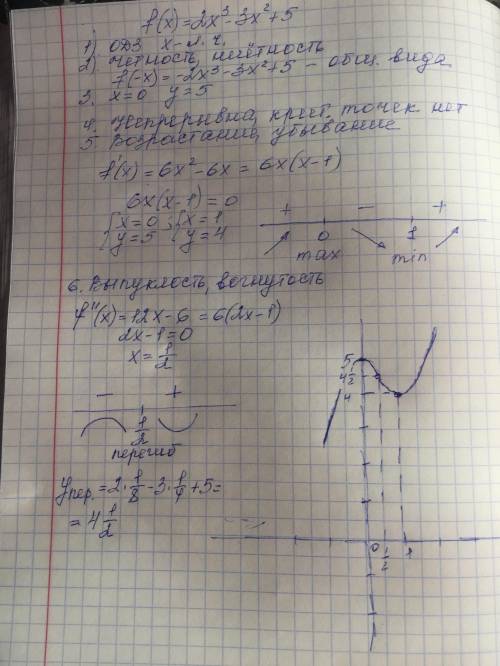 f(x)=2x³-3x²+5
1) ОДЗ x-л.ч.
2) Чётность, нечётность
f(-x)=-2x³-3x²+5 - общ. вида
3. x=0 y=5
4. Непрерывна, крит. точек нет
5. Возрастание, убывание
f'(x)=6x²-6x=6x(x-1)
6x(x-1)=0
{x=0 ; {x=1
y=5 y=4
+ - +
0 1
max min
6. Выпуклость, вогнутость
f''(x)=12x-6=6(2x-1)
2x-1=0
x=1/2
- +
1/2
перегиб
yпер.=2·1/8-3·1/4+5=
=4 1/2
5
4 1/2
4
0 1/2 1